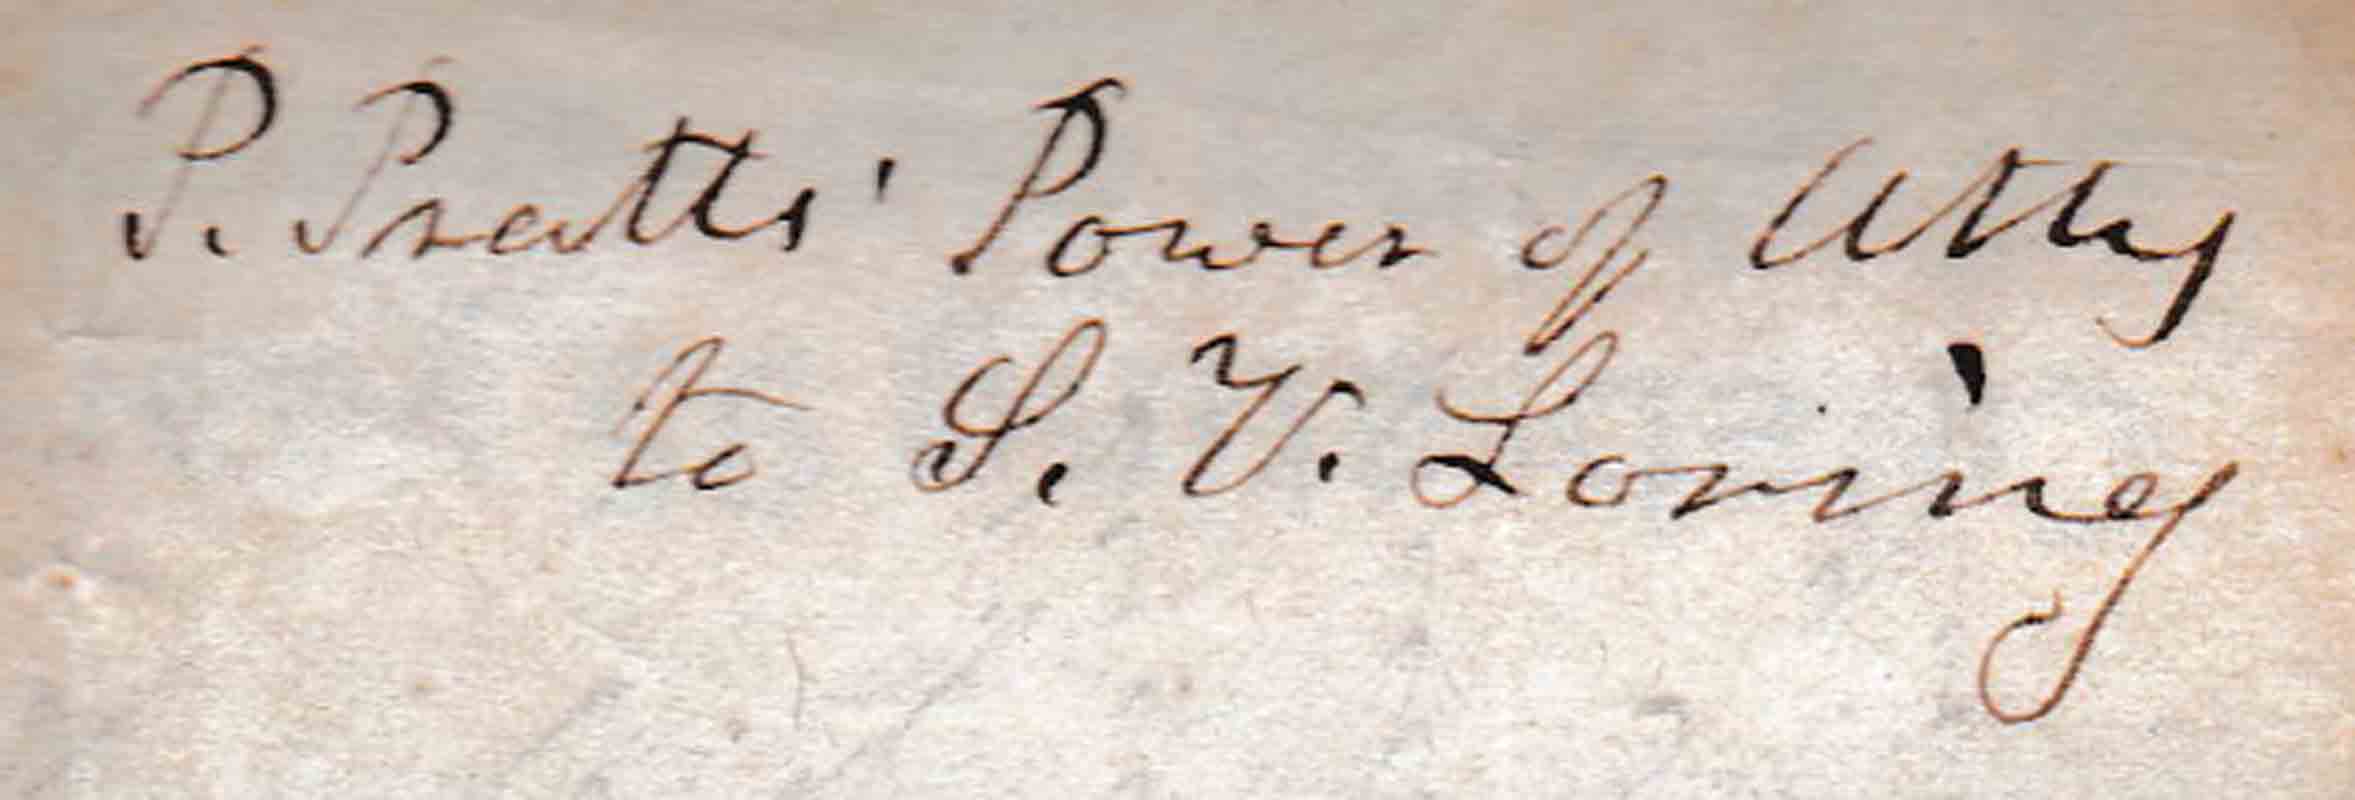 P. Pratts' Power of Atty
to S. V. Loring